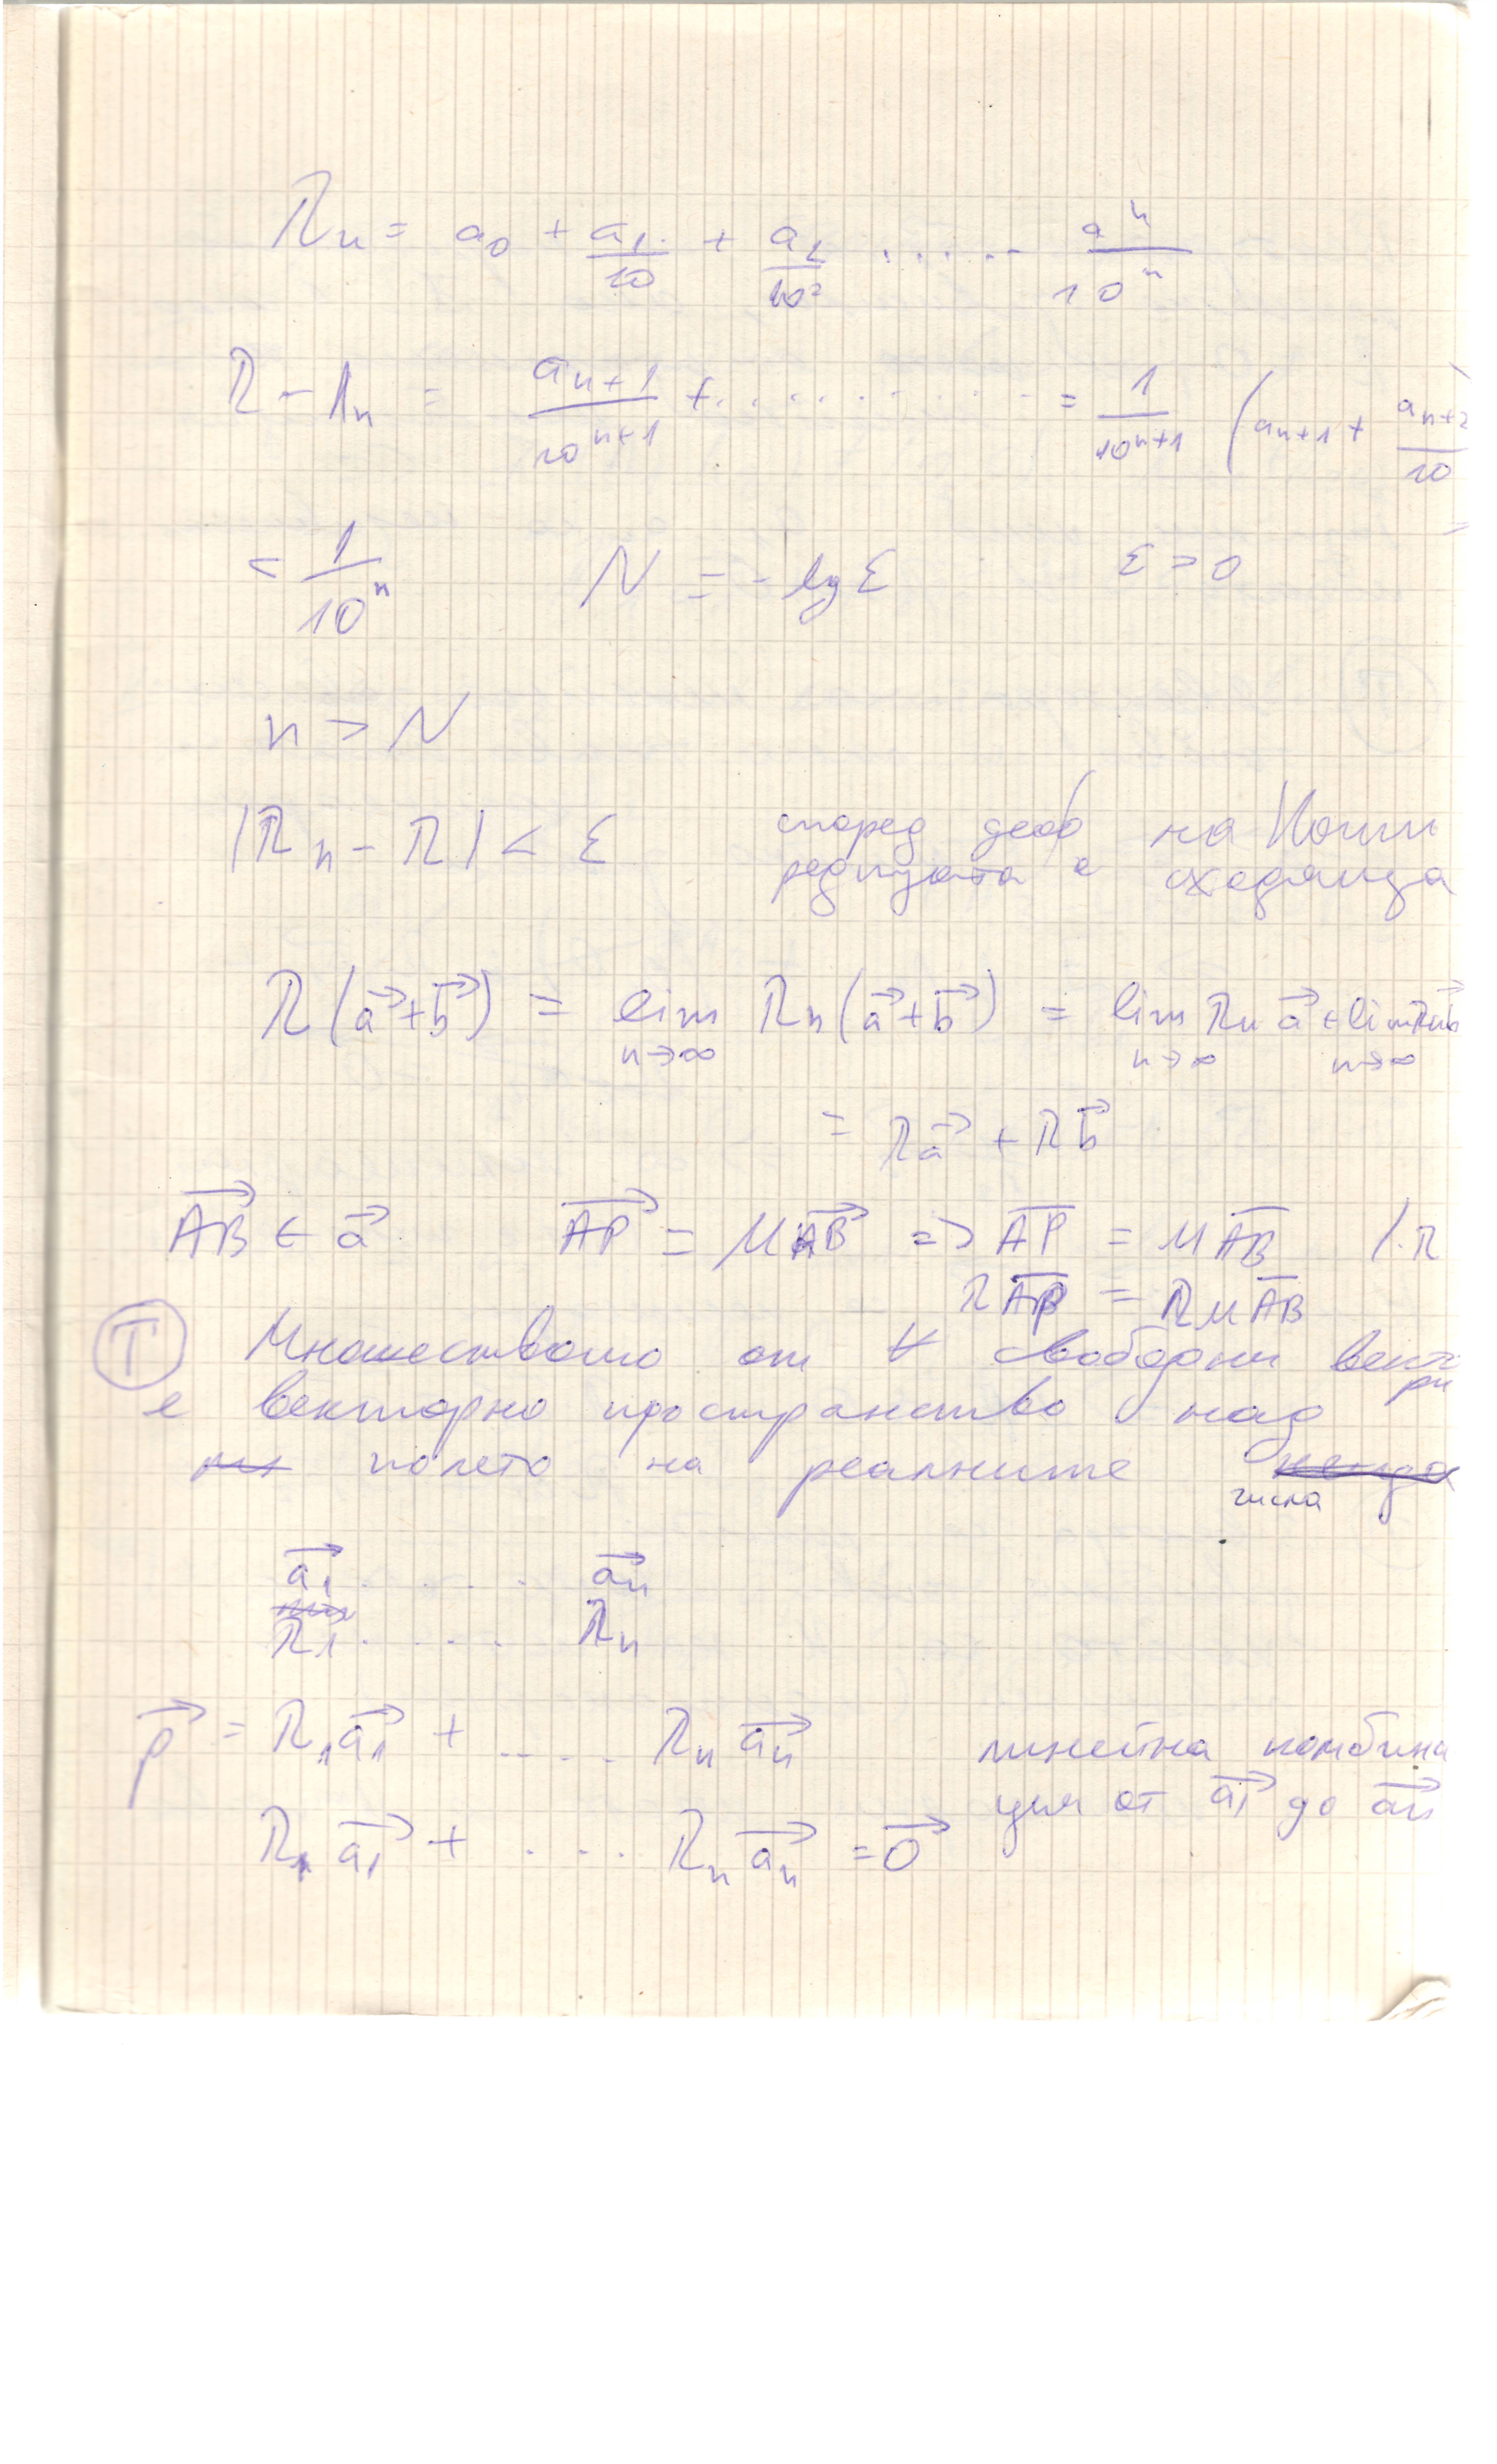 λn = a0 + a1/10 + a2/10² ...... aⁿ/10ⁿ
λ - λn = an+1/10ⁿ⁺¹ + .......... = 1/10ⁿ⁺¹ (an+1 + an+2/10
< 1/10ⁿ N = - lg ε ε > 0
n > N
|λn - λ| < ε според деф на Коши
редицата е сходяща
λ(a⃗+b⃗) = lim n→∞ λn(a⃗+b⃗) = lim n→∞ λn a⃗ + lim n→∞ λn b⃗
= λa⃗ + λb⃗
AB⃗ ∈ a⃗ AP⃗ = μAB⃗ => A̅P̅ = μA̅B̅ /.λ
λA̅P̅ = λμA̅B̅
Т Множеството от ∀ свободни векто
ри
е векторно пространство над
полето на реалните
числа
a1⃗ . . . . an⃗
λ1 . . . . λn
p⃗ = λ1a1⃗ + ..... λn an⃗ линейна комбина
ция от a1⃗ до an⃗
λ1 a1⃗ + .... λn an⃗ = 0⃗